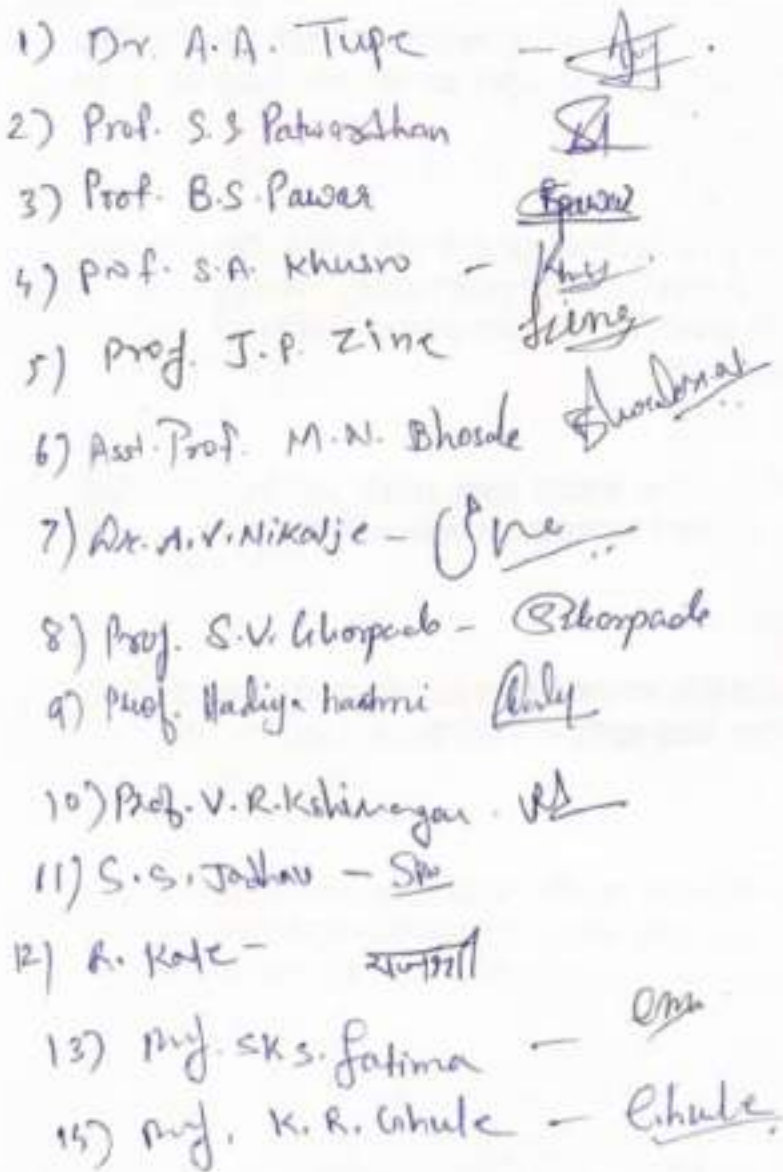 1) Dr. A.A. Tupe -
2) Prof. S.S Patwardhan
3) Prof. B.S. Pawar Bpawar
4) Prof. S.A. Khusro -
5) Prof. J.P. Zine
6) Asst. Prof. M.N. Bhosale
7) Dr. A.V. Nikalje -
8) Prof. S.V. Ghorpade - Ghorpade
9) Prof. Hadiya hashmi
10) Prof. V.R. Kshirsagar -
11) S.S. Jadhav -
12) R. Kale -
13) Prof. SK S. fatima -
14) Prof. K.R. Ghule - Ghule